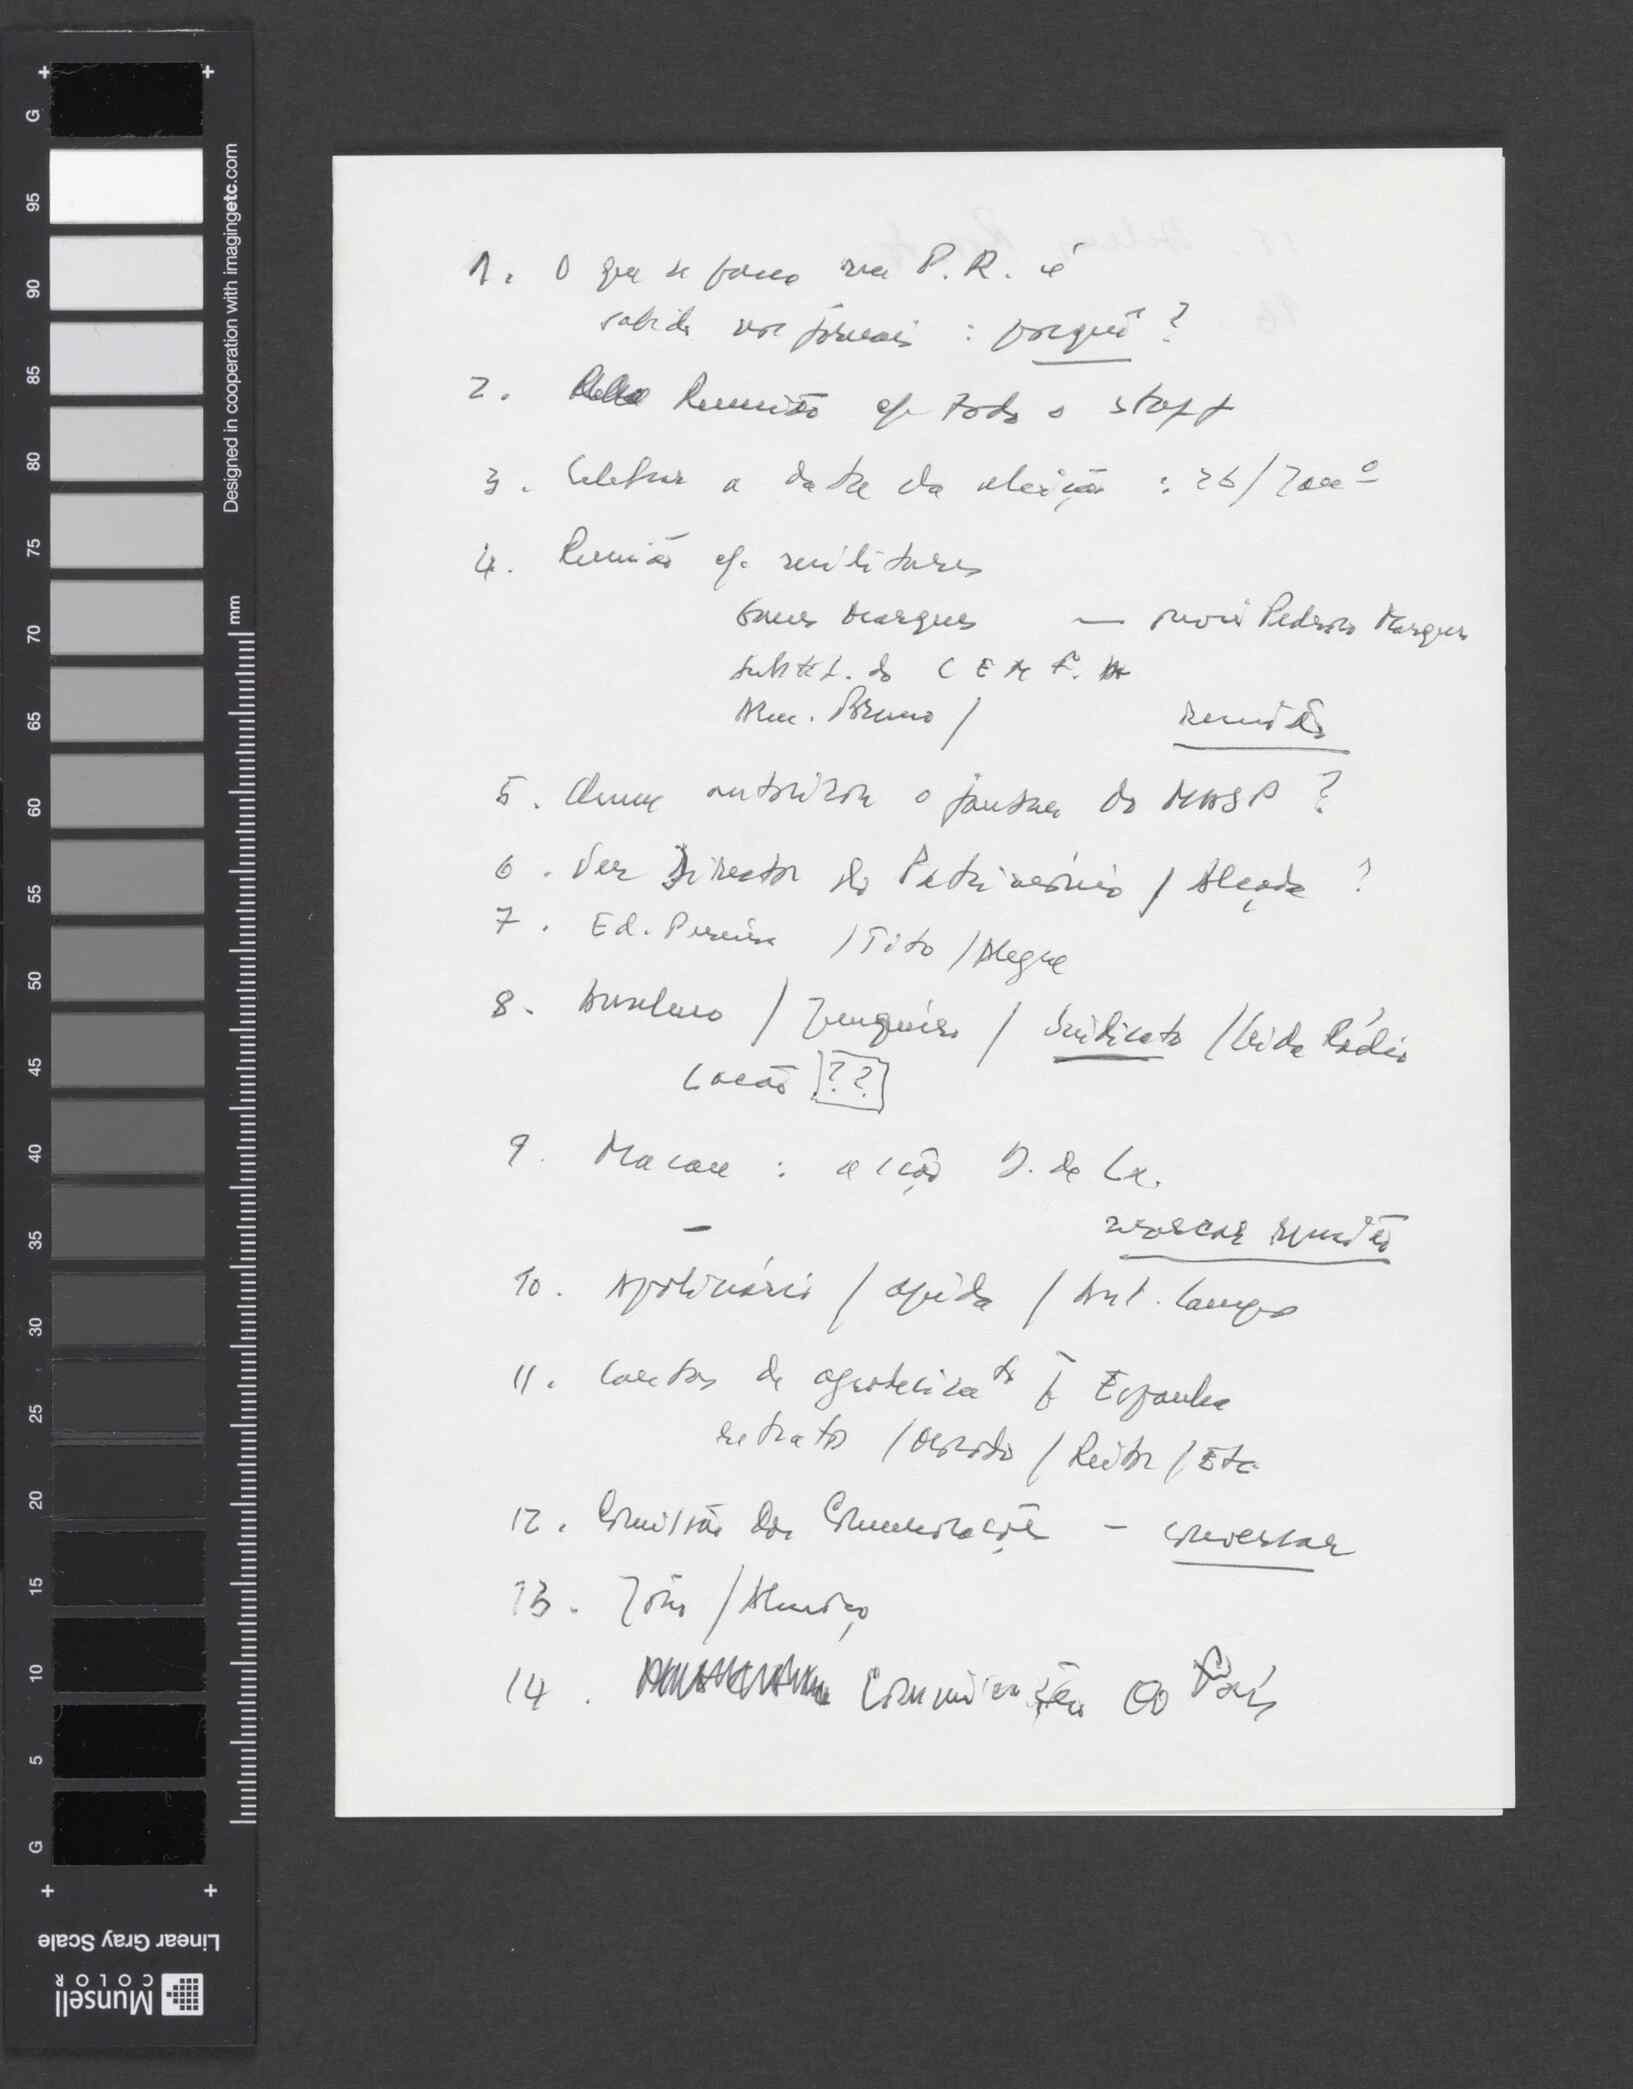 1. O que se passa na P.R. é
sabido nos jornais : porquê ?
2. Reunião c/ todo o staff
3. Celebrar a data da eleição : 26/
4. Reunião c/. militares
Marques — Pedroso Marques
do C E M F. A
Alm. Bruno /
reunião
5. Quem autoriza o jantar do MASP ?
6. Ver Director do Património / Alçada ?
7. Ed. Pereira / Tito / Alegre
8. Anselmo / Junqueiro / Sindicato / Rádio
??
9. Macau : acção D. de Lx.
marcar reunião
10. Apolinário / ajuda / Ant. Campos
11. Cartas de agradecimto p/ Espanha
retrato / / Reitor / Etc
12. Comissão das Comemorações — conversar
13. João / Almoço
14. Comunicação ao País
G 95 90 85 80 75 70 65 60 55 50 45 40 35 30 25 20 15 10 5 G
Designed in cooperation with imagingetc.com
mm
Linear Gray Scale
Munsell
COLOR